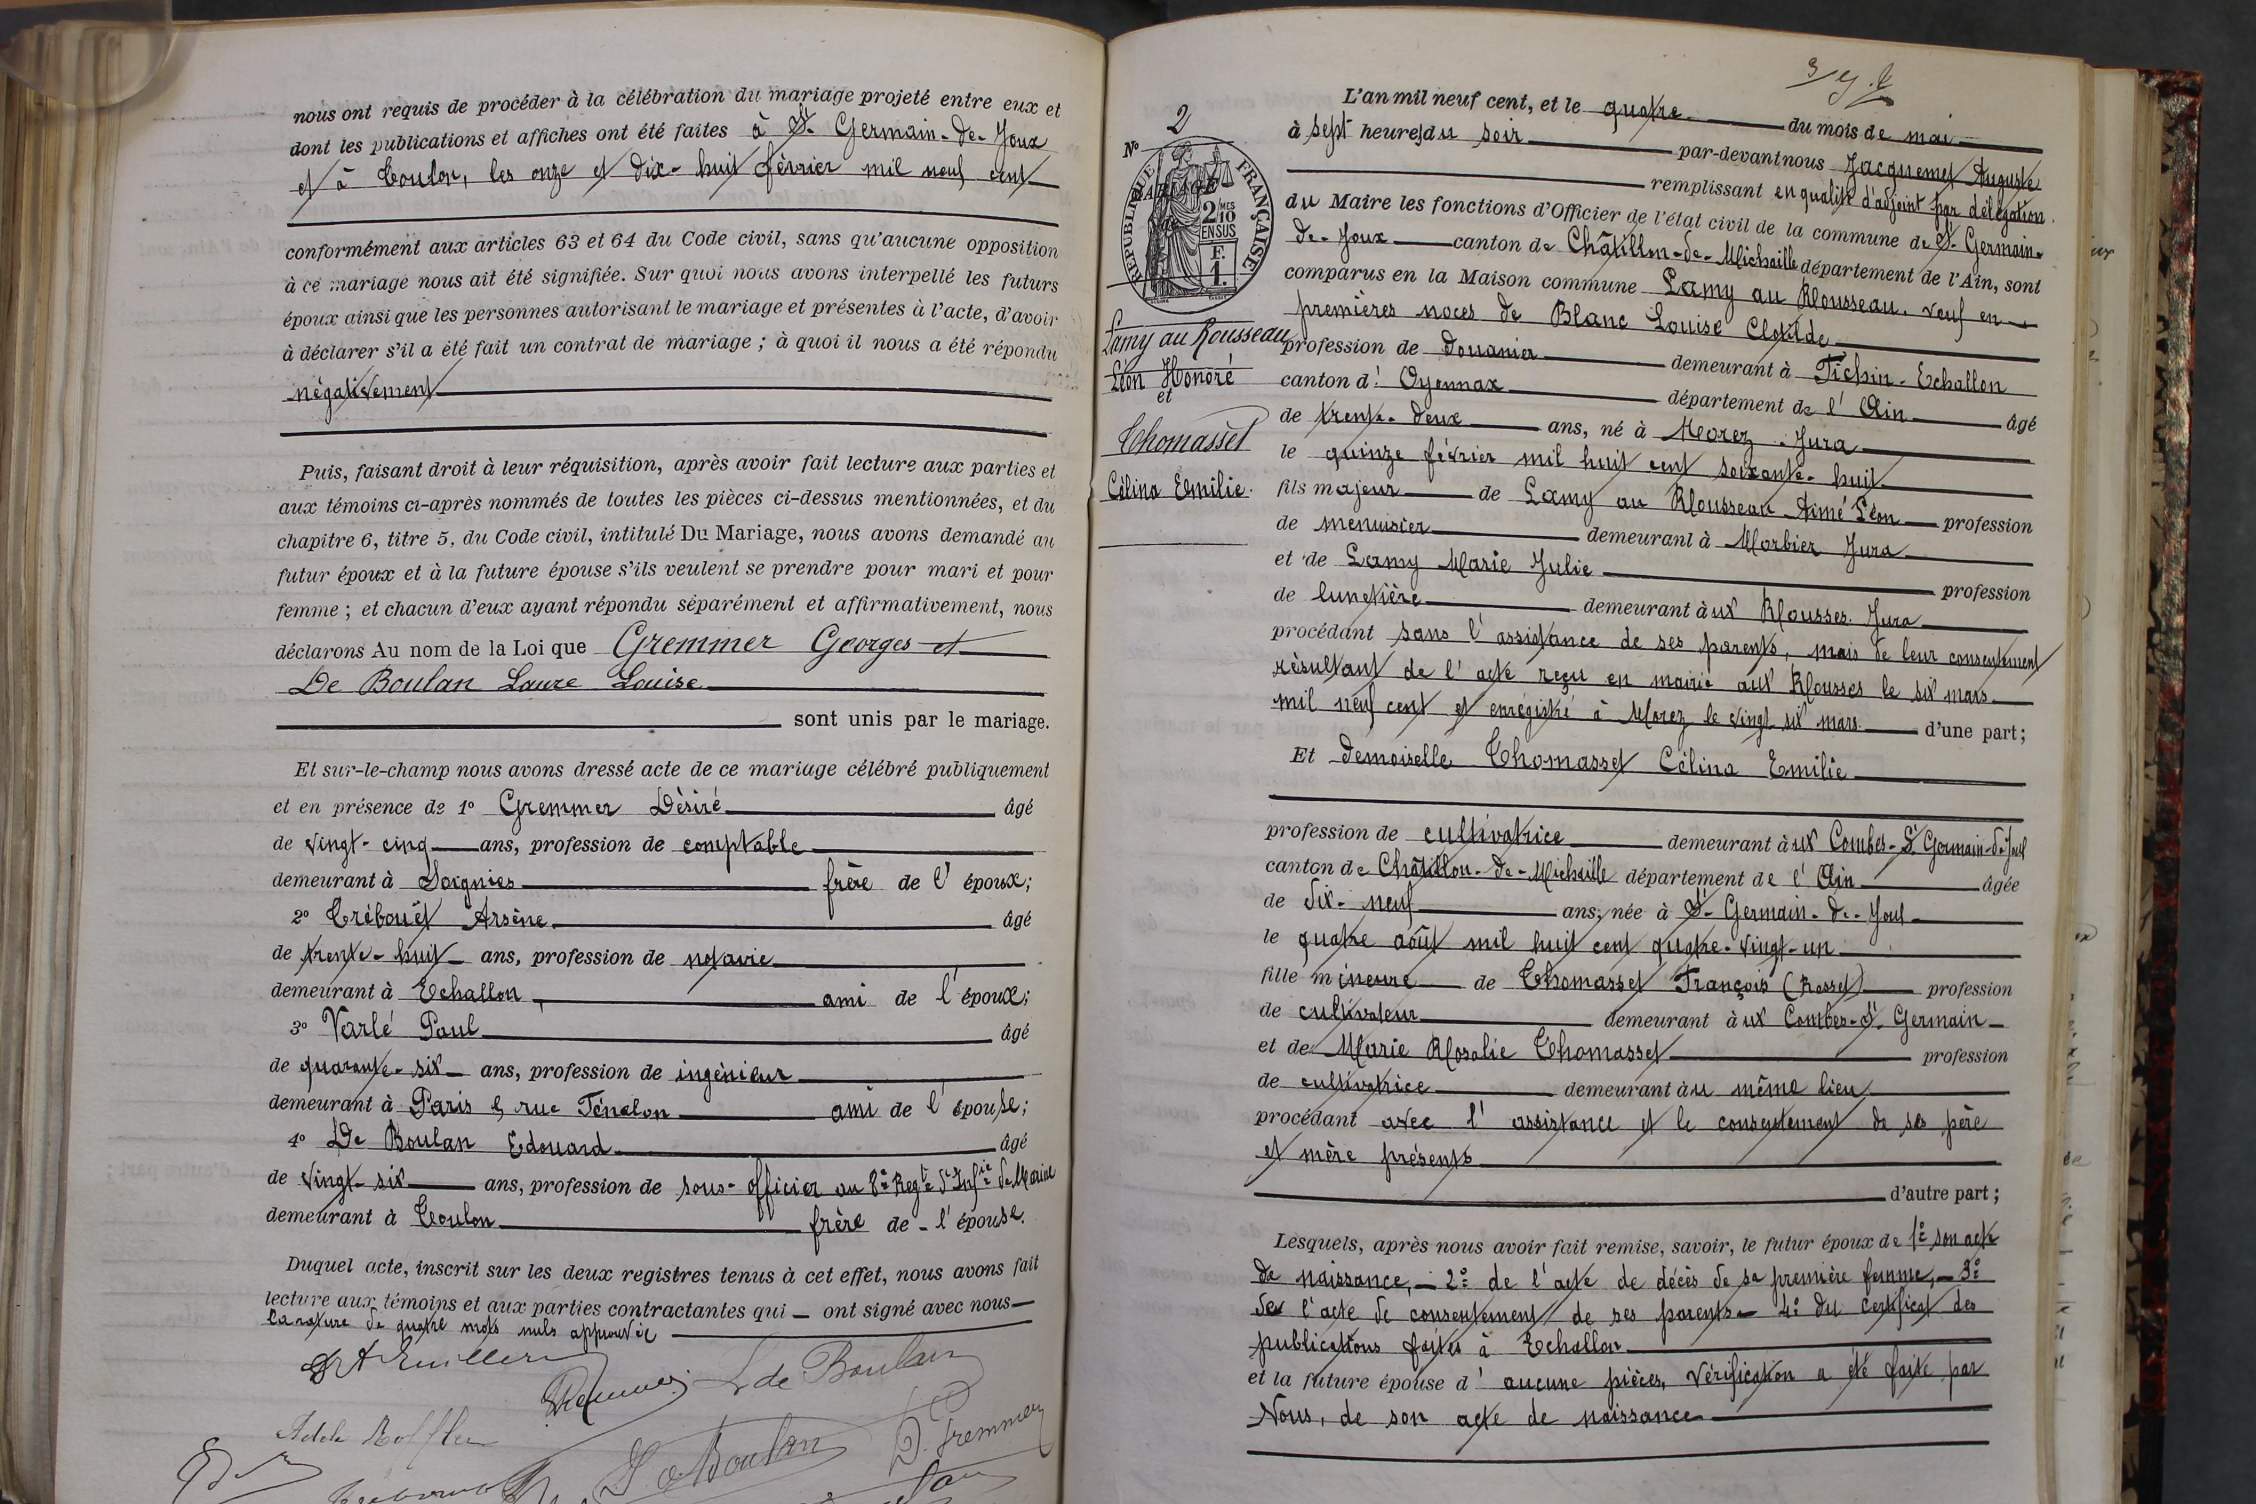 nous ont requis de procéder à la célébration du mariage projeté entre eux et
dont les publications et affiches ont été faites à St Germain-de-Joux
et à Toulon, les onze et dix-huit février mil neuf cent
conformément aux articles 63 et 64 du Code civil, sans qu'aucune opposition
à ce mariage nous ait été signifiée. Sur quoi nous avons interpellé les futurs
époux ainsi que les personnes autorisant le mariage et présentes à l'acte, d'avoir
à déclarer s'il a été fait un contrat de mariage ; à quoi il nous a été répondu
négativement
Puis, faisant droit à leur réquisition, après avoir fait lecture aux parties et
aux témoins ci-après nommés de toutes les pièces ci-dessus mentionnées, et du
chapitre 6, titre 5, du Code civil, intitulé Du Mariage, nous avons demandé au
futur époux et à la future épouse s'ils veulent se prendre pour mari et pour
femme ; et chacun d'eux ayant répondu séparément et affirmativement, nous
déclarons Au nom de la Loi que Gremmer Georges et
De Boulan Laure Louise
sont unis par le mariage.
Et sur-le-champ nous avons dressé acte de ce mariage célébré publiquement
et en présence de 1° Gremmer Désiré âgé
de vingt-cinq ans, profession de comptable
demeurant à Soignies frère de l'époux;
2° Trébouët Arsène âgé
de trente-huit ans, profession de notaire
demeurant à Echallon, ami de l'époux;
3° Varlé Paul âgé
de quarante-six ans, profession de ingénieur
demeurant à Paris rue Fénelon ami de l'épouse;
4° De Boulan Edouard âgé
de vingt-six ans, profession de sous-officier au 8e Regt d'Infie de Marine
demeurant à Toulon frère de l'épouse.
Duquel acte, inscrit sur les deux registres tenus à cet effet, nous avons fait
lecture aux témoins et aux parties contractantes qui ont signé avec nous
La rature de quatre mots nuls approuvée
L de Boulan
Adèle
L. de Boulan
D. Gremmer
2
N°
RÉPUBLIQUE FRANÇAISE
MARIAGE
2 MES
10
EN SUS
F.
1.
Lamy au Rousseau
Léon Honoré
et
Thomasset
Célina Emilie.
L'an mil neuf cent, et le quatre du mois de mai
à sept heures du soir par-devant nous Jacquemet Auguste
remplissant en qualité d'adjoint par délégation
du Maire les fonctions d'Officier de l'état civil de la commune de St Germain-
de-Joux canton de Châtillon-de-Michaille département de l'Ain, sont
comparus en la Maison commune Lamy au Rousseau. veuf en
premières noces de Blanc Louise Clotilde
profession de douanier demeurant à Tichin-Echallon
canton d'Oyonnax département de l'Ain âgé
de trente-deux ans, né à Morez. Jura
le quinze février mil huit cent soixante-huit
fils majeur de Lamy au Rousseau Aimé Léon profession
de menuisier demeurant à Morbier Jura
et de Lamy Marie Julie profession
de lunetière demeurant aux Rousses. Jura
procédant sans l'assistance de ses parents, mais de leur consentement
résultant de l'acte reçu en mairie aux Rousses le six mars
mil neuf cent et enregistré à Morez le vingt six mars d'une part;
Et demoiselle Thomasset Célina Emilie
profession de cultivatrice demeurant aux Combes-St Germain-de-Joux
canton de Châtillon-de-Michaille département de l'Ain âgée
de dix-neuf ans, née à St Germain-de-Joux
le quatre août mil huit cent quatre-vingt-un
fille mineure de Thomasset François (Rosset) profession
de cultivateur demeurant aux Combes-St Germain
et de Marie Rosalie Thomasset profession
de cultivatrice demeurant au même lieu
procédant avec l'assistance et le consentement de ses père
et mère présents
d'autre part;
Lesquels, après nous avoir fait remise, savoir, le futur époux de 1° son acte
de naissance, 2° de l'acte de décès de sa première femme, 3°
de l'acte de consentement de ses parents 4° du certificat des
publications faites à Echallon
et la future épouse d'aucune pièces, vérification a été faite par
Nous, de son acte de naissance